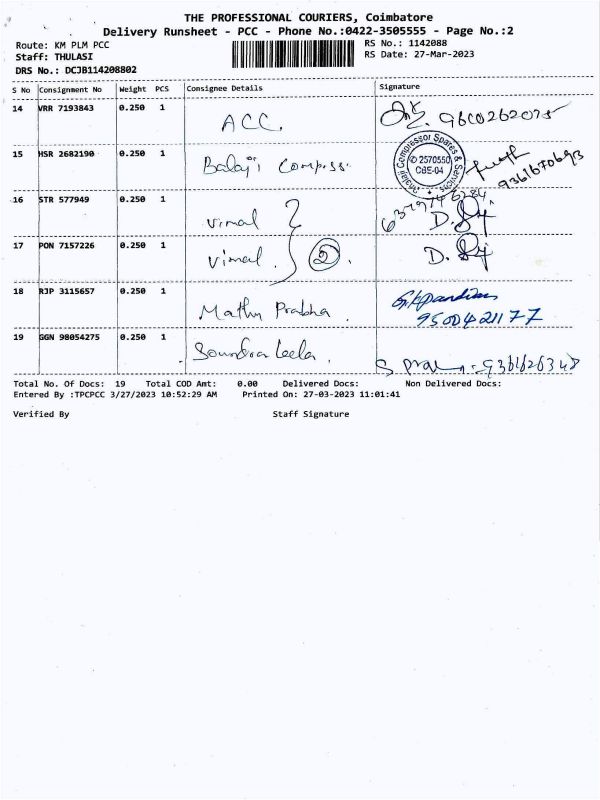 THE PROFESSIONAL COURIERS, Coimbatore
Delivery Runsheet - PCC - Phone No.:0422-3505555 - Page No.:2
Route: KM PLM PCC
RS No.: 1142088
Staff: THULASI
RS Date: 27-Mar-2023
DRS No.: DCJB114208802
S No Consignment No Weight PCS Consignee Details Signature
14 VRR 7193843 0.250 1 ACC. 9600262075
15 HSR 2682190 0.250 1 Balaji Compress.
Compressor Spares & Services
✆ 2570550
CBE-04
9361670693
16 STR 577949 0.250 1 Vimal
17 PON 7157226 0.250 1 Vimal. ②.
18 RJP 3115657 0.250 1 Mathu Prabha.
9500421177
19 GGN 98054275 0.250 1 Soundra Leela.
Total No. Of Docs: 19 Total COD Amt: 0.00 Delivered Docs: Non Delivered Docs:
Entered By :TPCPCC 3/27/2023 10:52:29 AM Printed On: 27-03-2023 11:01:41
Verified By Staff Signature